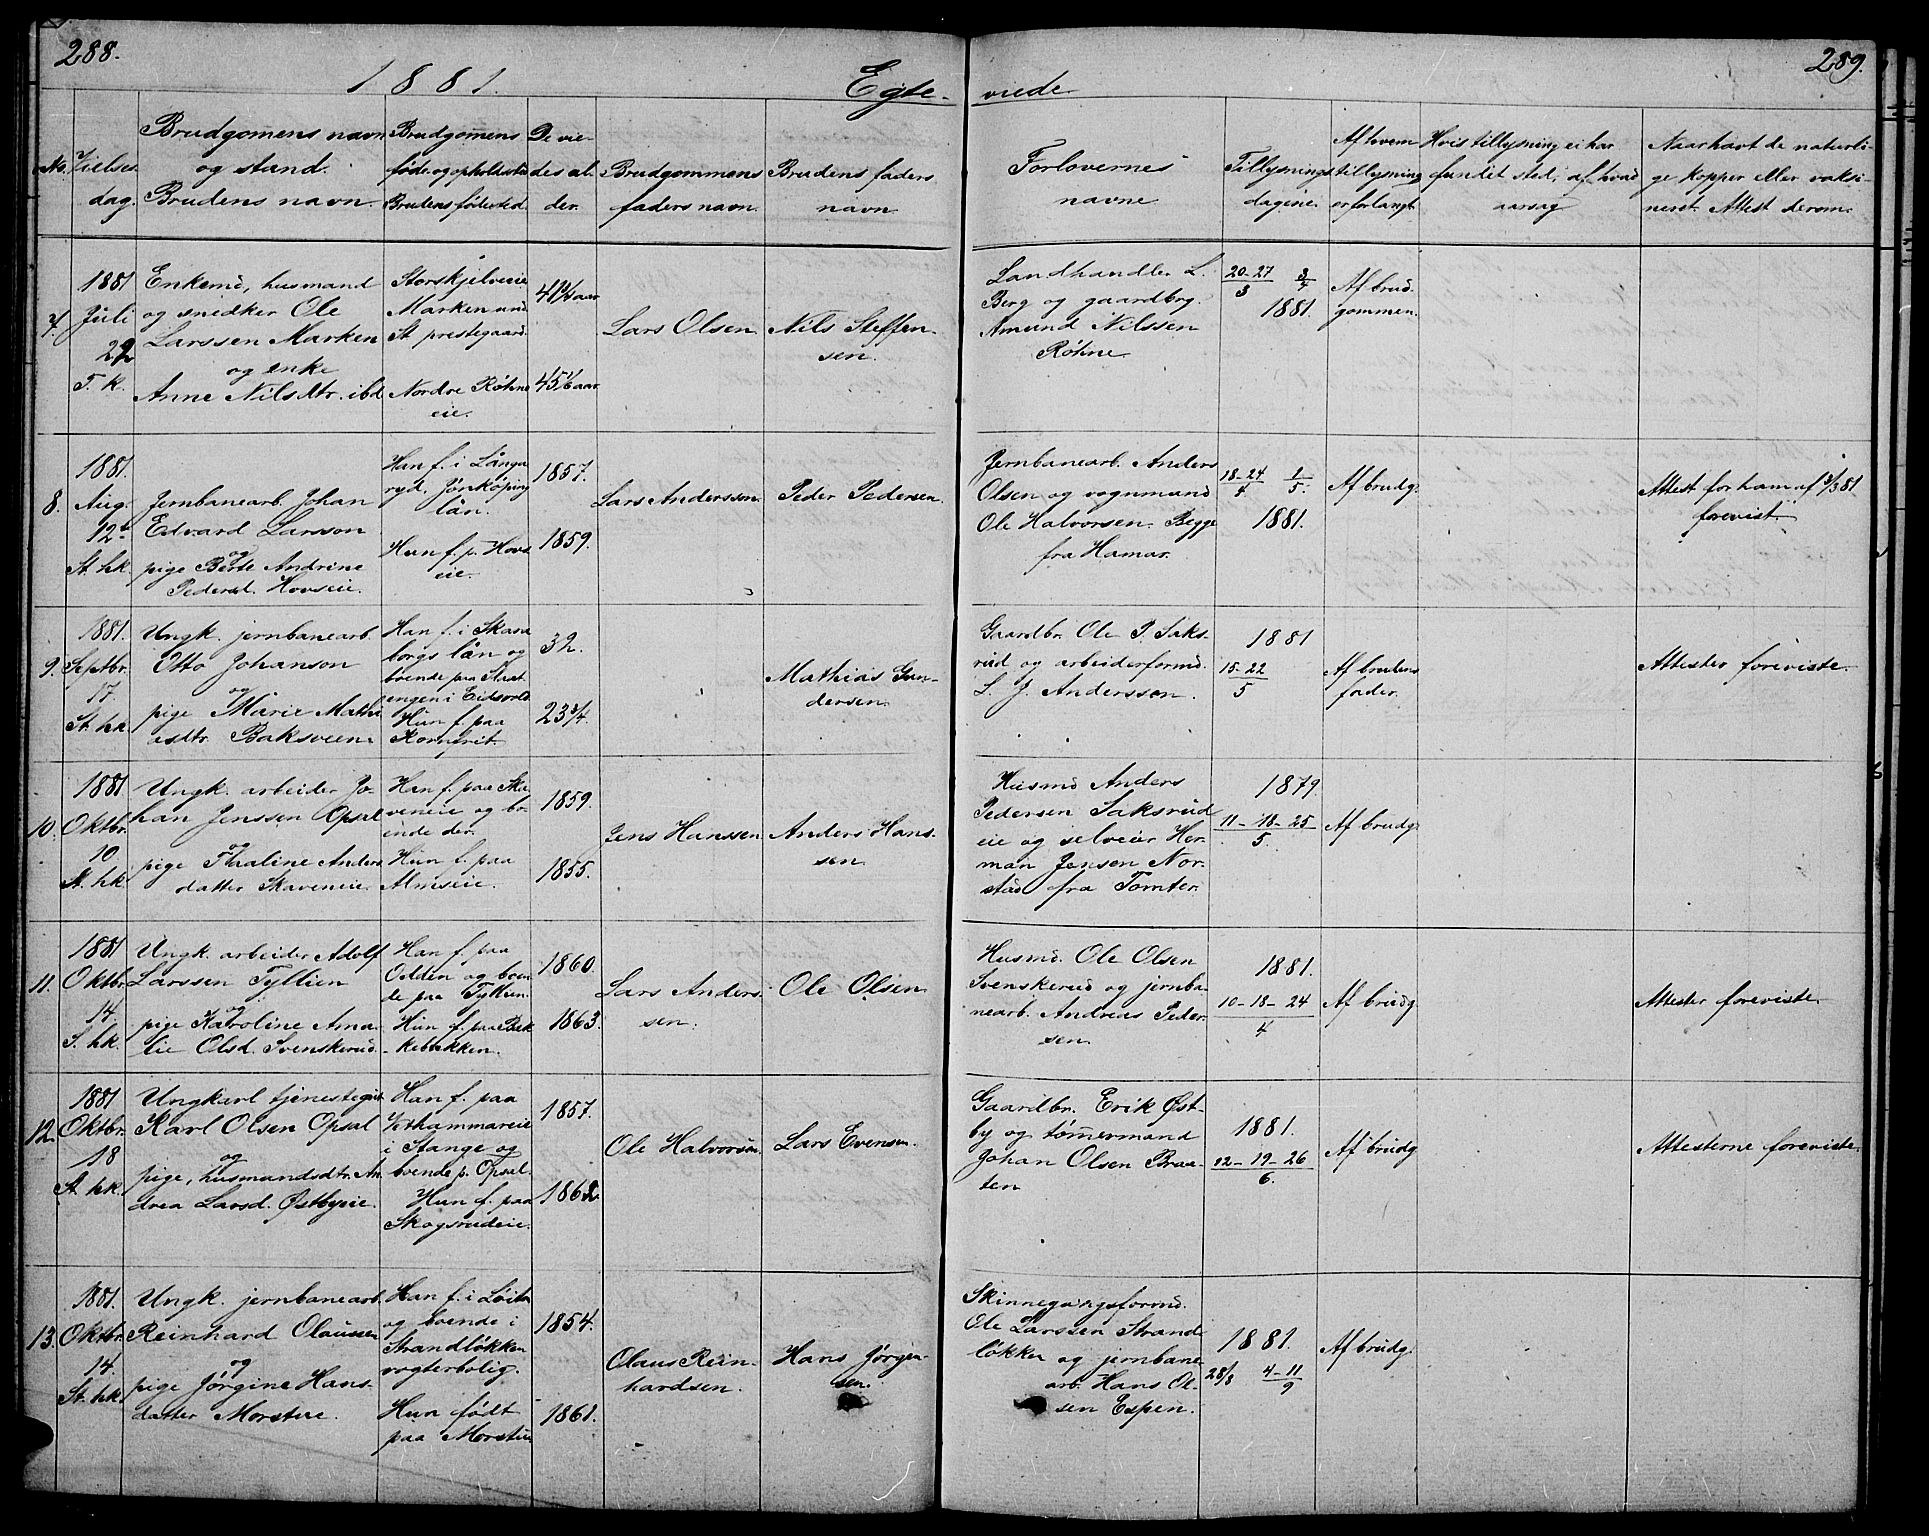 288.
1881.
Egte-
viede
289.
No.
Vielses
dag.
Brudgomens navn
og stand.
Brudens navn
Brudgomens
føde og opholdssted
Brudens fødested
De vie-
des al-
der.
Brudgommens
faders navn.
Brudens faders
navn
Forlovernes
navne
Tillysnings
dagene.
Af hvem
tillysning
er forlangt.
Hvis tillysning ei har
fundet sted, af hvad
aarsag
Naar havt de naturli-
ge kopper eller vaksi-
neret. Attest derom.
7.
1881
Juli
22
T. k.
Enkemd, husmand
og snedker Ole
Larssen Marken
og enke
Anne Nilsdtr. ibd
Storskjelveeie
Marken und
St prestegaard.
Nordre Røhne
eie.
45 1/6 aar
Lars Olsen
Nils Steffen-
sen.
Landhandler L.
Berg og gaardbrg.
Amund Nilssen
Røhne
20-27/3 3/4
1881.
Af brud-
gommen.
8.
1881.
Aug.
12te
St. hk.
Jernbanearb. Johan
Edvard Larsson
og
pige Berte Andrine
Pedersd. Hovseie.
Han f. i Långa
ryd, Jönköping
län.
Hun f. p. Hovs
eie.
1857.
1859.
Lars Andersson.
Peder Pedersen.
Jernbanearb. Anders
Olsen og vognmand
Ole Halvorsen. Begge
fra Hamar.
18-24/4 1/5.
1881.
Af brudg.
Attest for ham af 3/3 81
forevist.
9.
1881.
Septbr.
17
St. hk.
Ungk. jernbanearb.
Otto Johanson
og
pige Marie Mathi
asdtr. Baksveen
Han f. i Skara
borgs län og
boende paa
engen i Eidsvold
Hun f. paa
32.
23 3/4.
Mathias Gun-
dersen.
Gaardbr. Ole P. Saks-
rud og arbeiderformd.
L. J. Anderssen.
1881
15-22/5
Af brudens
fader.
Attester foreviste.
10.
1881
Oktbr.
10
St. hk
Ungk. arbeider Jo-
han Jenssen Opsal
og
pige Thaline Anders
datter Skaveneie.
Han f. paa Ska
veneie og bo-
ende der.
Hun f. paa
Almseie.
1859.
1855.
Jens Hanssen.
Anders Hans-
sen.
Husmd Anders
Pedersen Saksrud
eie og selveier Her-
man Jensen Nor-
stad fra Tomter.
1879.
11-18-25/5.
Af brudg.
11.
1881
Oktbr.
14.
S. hk.
Ungk. arbeider Adolf
Larssen Tyllien
og
pige Karoline Ama-
lie Olsd. Svenskerud
Han f. paa
Odden og boen
de paa
Hun f. paa Bek
-kebakken.
1860.
1863.
Lars Anders-
sen.
Ole Olsen
Husmd. Ole Olsen
Svenskerud og jernba-
nearb. Andreas Peder-
sen.
1881.
10-18-24/4
Af brudg.
Attester foreviste.
12.
1881
Oktbr.
18
St. hk.
Ungkarl tjenestegut
Karl Olsen Opsal
og
pige, husmandsdtr. An
drea Larsd. Østbyeie.
Han f. paa
i Stange og
boende p. Opsal.
Hun f. paa
Skogsrudeie.
1857.
1862
Ole Halvorsen
Lars Evensen.
Gaardbr. Erik Øst-
by og tømmermand
Johan Olsen Braa-
ten
1881.
12-19-26/6.
Af brudg
Attesterne foreviste.
13.
1881.
Oktbr.
14.
St. hk.
Ungk. jernbanearb.
Reinhard Olaussen
og
pige Jørgine Hans-
datter Morstue.
Han f. i Løiten
og boende i
Strandløkken
vogterbolig.
Hun født
paa Morstue
1854.
1861.
Olaus Rein-
hardsen.
Hans Jørgen-
sen.
Skinnegangsformd.
Ole Larssen Strand
løkken og jernbane
arb. Hans Ol-
sen Espen.
1881.
28/8 4-11/9
Af brudg.